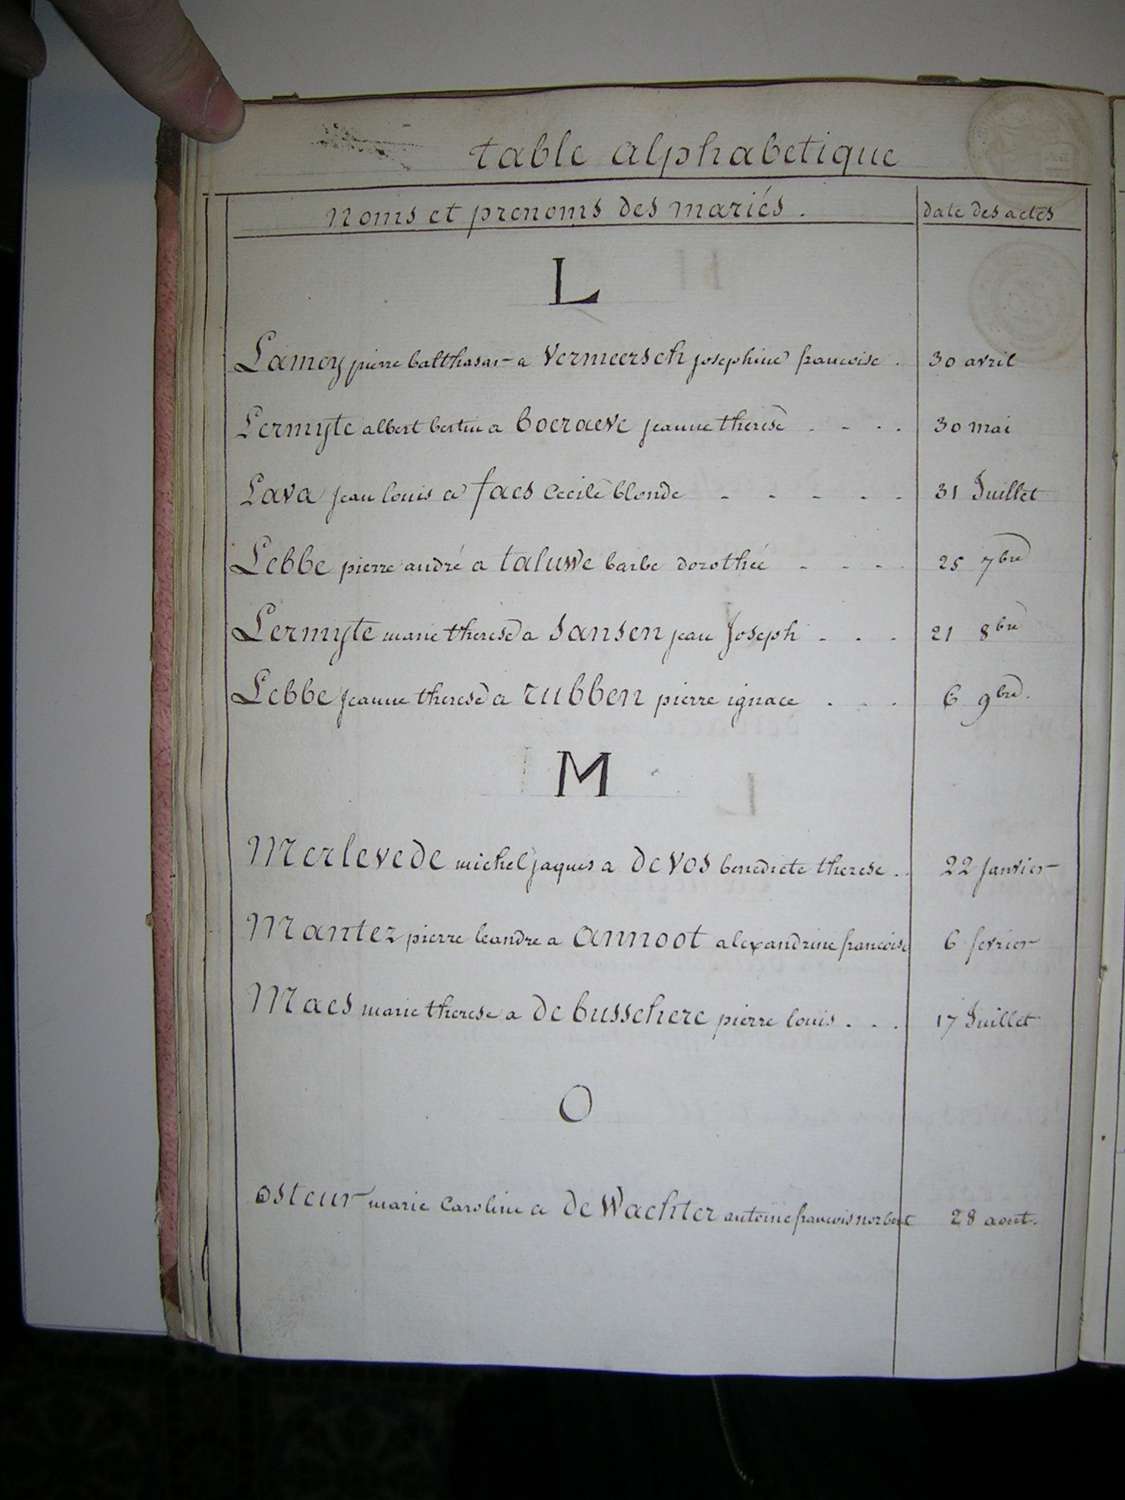 table alphabetique
Noms et prenoms des mariés. date des actes
L
Lamoy pierre balthasar a Vermeersch josephine francoise . 30 avril
Lermyte albert bertin a boeraeve jeanne therese . - . . 30 mai
Lava jean louis a faes Cecile blonde - - - - - 31 Juillet
Lebbe pierre andré a taluwe barbe dorothée - - - - 25 7bre
Lermyte marie therese a Sansen jean Joseph . . . 21 8bre
Lebbe jeanne therese a rubben pierre ignace . . . 6 9bre.
M
Merlevede michel jaques a de vos benedicte therese . . 22 janvier
Mantez pierre leandre a annoot alexandrine francoise 6 fevrier
Maes marie therese a de busschere pierre louis . . . 17 Juillet
O
osteur marie Caroline a de Wachter antoine francois norbert 28 aout.